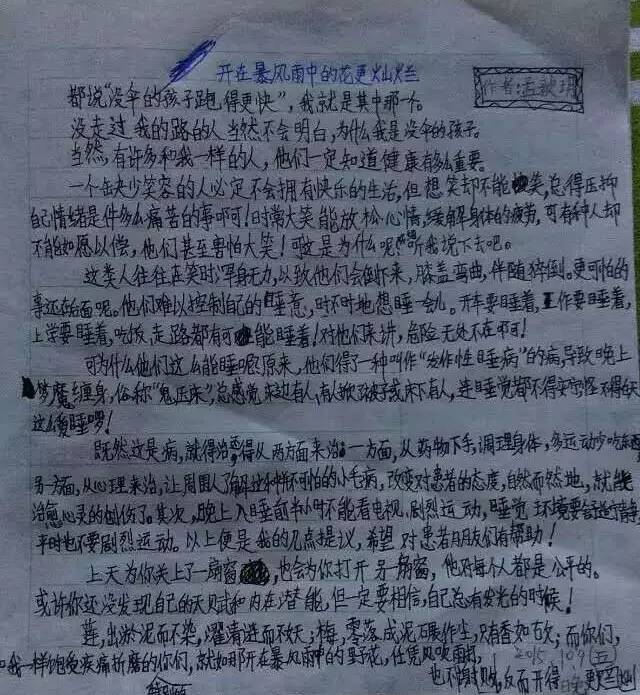 开在暴风雨中的花更灿烂
作者:孟
都说“没伞的孩子跑得更快”，我就是其中那一个。
没走过我的路的人当然不会明白，为什么我是没伞的孩子。
当然，有许多和我一样的人，他们一定知道健康有多么重要。
一个缺少笑容的人必定不会拥有快乐的生活，但想笑却不能笑，总得压抑
自己情绪是件多么痛苦的事啊！时常大笑能放松心情，缓解身体的疲劳，可有种人却
不能如愿以偿，他们甚至害怕大笑！可这是为什么呢 听我说下去吧。
这类人往往在笑时浑身无力，以致他们会倒下来，膝盖弯曲，伴随猝倒。更可怕的
事还在后面呢。他们难以控制自己的睡意，时不时地想睡一会儿。开车要睡着，工作要睡着，
上学要睡着，吃饭、走路都有可能睡着！对他们来讲，危险无处不在啊！
可为什么他们这么能睡呢？原来，他们得了一种叫作“发作性睡病”的病，导致晚上
梦魔缠身，俗称“鬼压床”，总感觉床边有人，有人掀了被子或床下有人，连睡觉都不得安宁，怪不得白天
这么爱睡啰！
既然这是病，就得治，得从两方面来治。一方面，从药物下手，调理身体，多运动少吃东西
另一方面，从心理来治，让周围人了解这种并不可怕的小毛病，改变对患者的态度，自然而然地，就能
治愈心灵的创伤了。其次，晚上入睡前半小时不能看电视、剧烈运动，睡觉环境要舒适宁静
平时也不要剧烈运动。以上便是我的几点提议，希望对患者朋友们有帮助！
上天为你关上了一扇窗，也会为你打开另一扇窗，他对每个人都是公平的。
或许你还没发现自己的天赋和内在潜能，但一定要相信，自己总有发光的时候！
莲，出淤泥而不染，濯清涟而不妖；梅，零落成泥碾作尘，只有香如故；而你们，
和我一样饱受疾痛折磨的你们，就如那开在暴风雨中的野花，任凭风吹雨打，
也不谢 反而开得 更灿烂
2015 10.9(五)